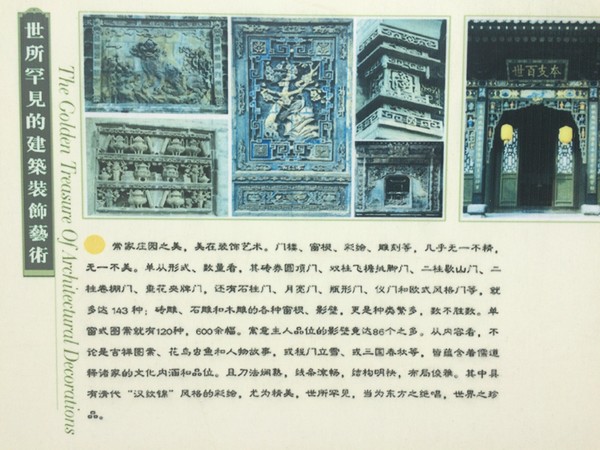 世所罕見的建築裝飾藝術
The Golden Treasure Of Architectural Decorations
世百支本
常家庄园之美，美在装饰艺术。门楼、窗棂、彩绘、雕刻等，几乎无一不精，
无一不美。单从形式、数量看，其砖券圆顶门、双柱飞檐抓脚门、二柱歇山门、二
柱卷棚门、垂花夹牌门，还有石柱门、月亮门、瓶形门、仪门和欧式风格门等，就
多达 143 种；砖雕、石雕和木雕的各种窗棂、影壁，更是种类繁多，数不胜数。单
窗式图案就有120种，600余幅。寓意主人品位的影壁竟达86个之多。从内容看，不
论是吉祥图案、花鸟虫鱼和人物故事，或程门立雪、或三国春秋等，皆蕴含着儒道
释诸家的文化内涵和品位。且刀法娴熟，线条流畅，结构明快，布局俊雅。其中具
有清代“汉纹锦”风格的彩绘，尤为精美，世所罕见，当为东方之绝唱，世界之珍
品。